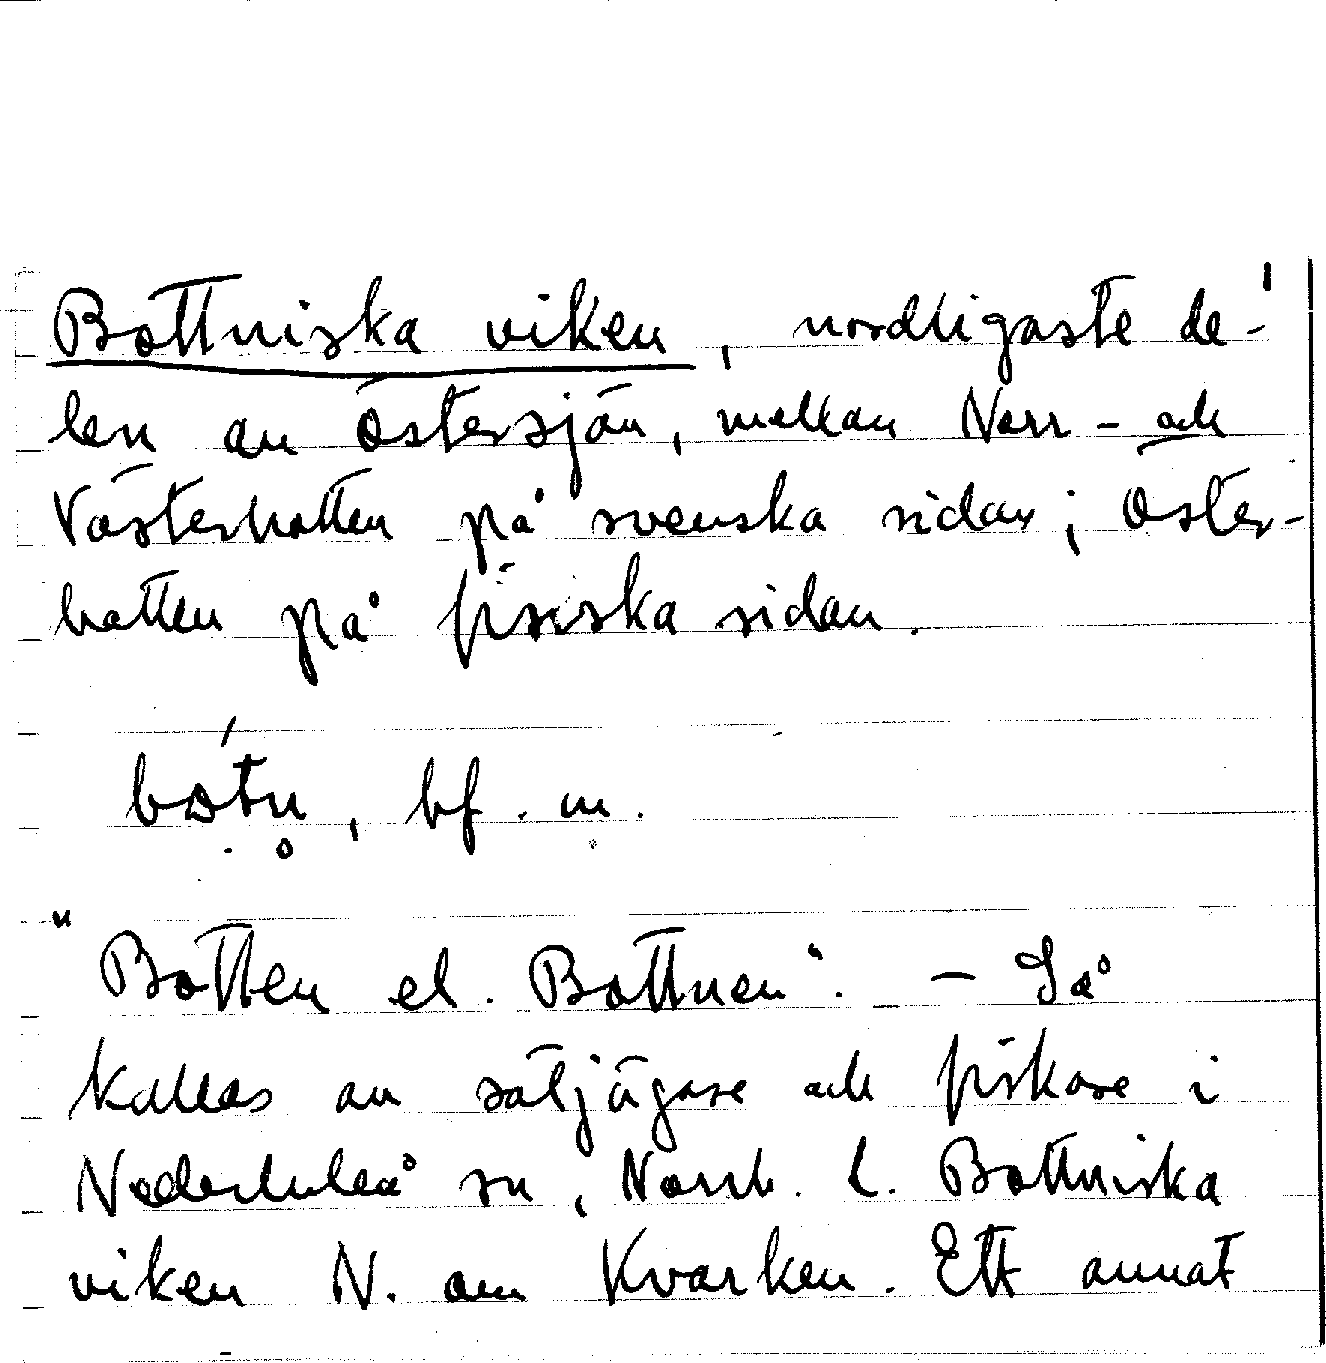 Bottniska viken, nordligaste de-
len av Östersjön, mellan Norr- och
Västerbotten på svenska sidan; Öster-
botten på finska sidan.
bot́n̥, bf. m.
"Botten el. Bottnen". – Så
kallas av säljägare och fiskare i
Nederluleå sn, Norrb. l. Bottniska
viken N. om Kvarken. Ett annat